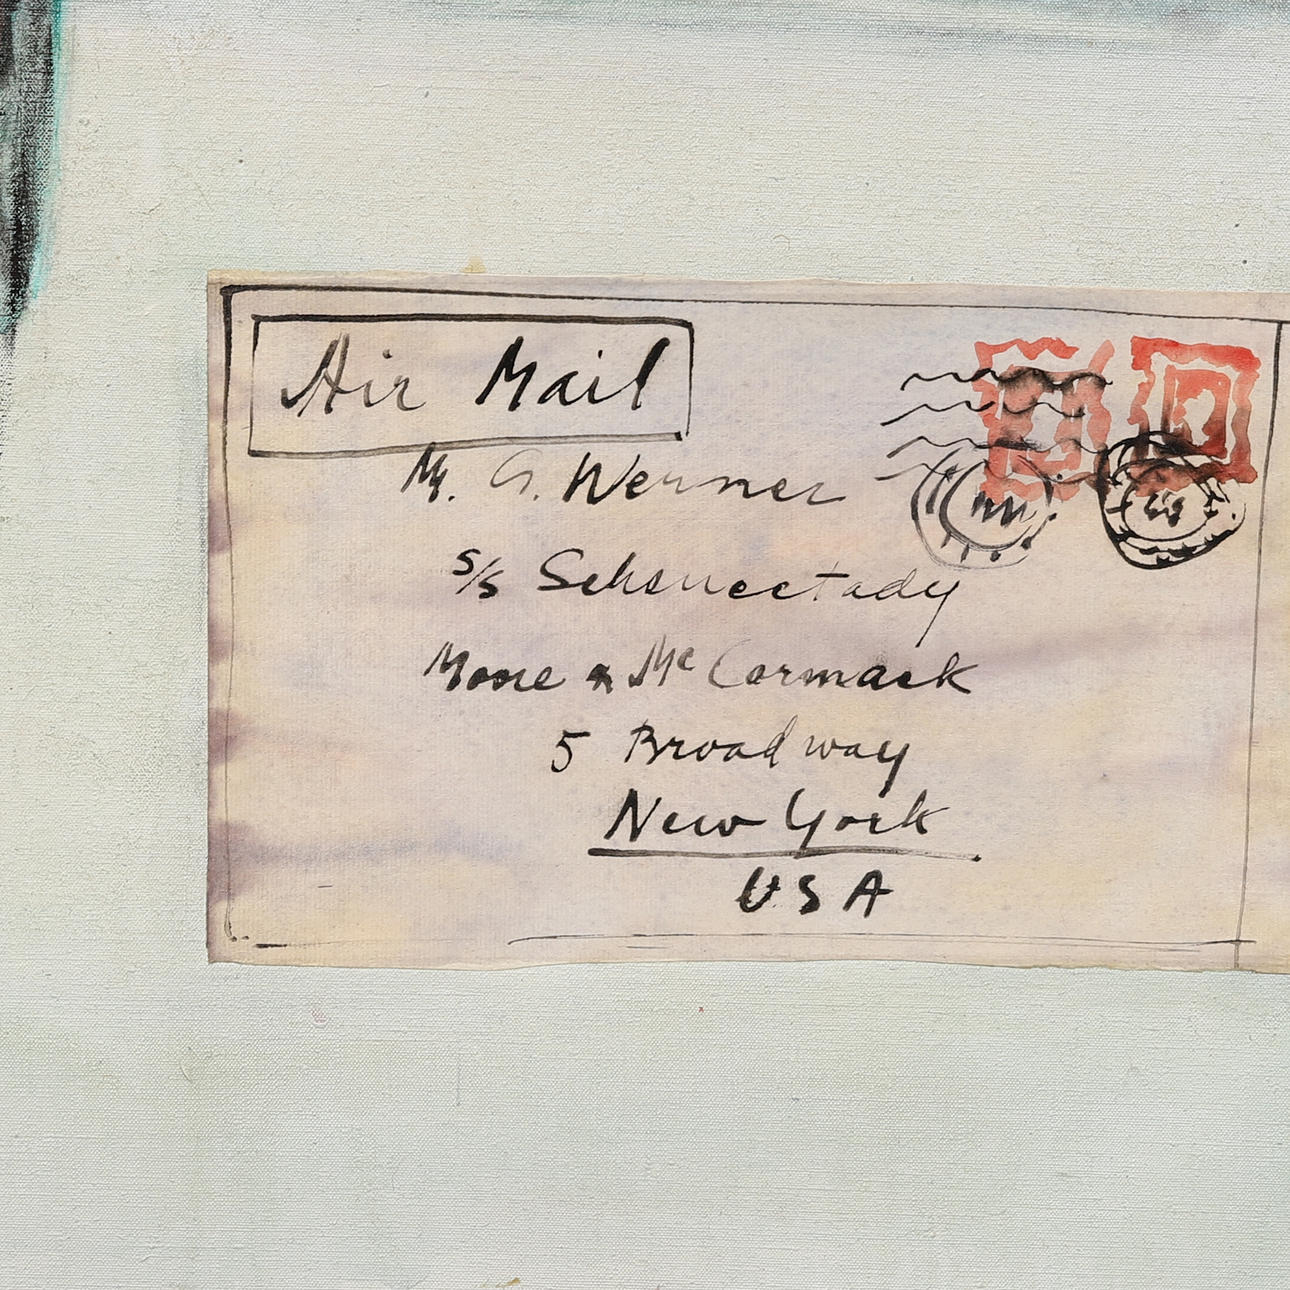 Air Mail
Mr. G. Werner
s/s Schenectady
Moore & McCormack
5 Broadway
New York
USA